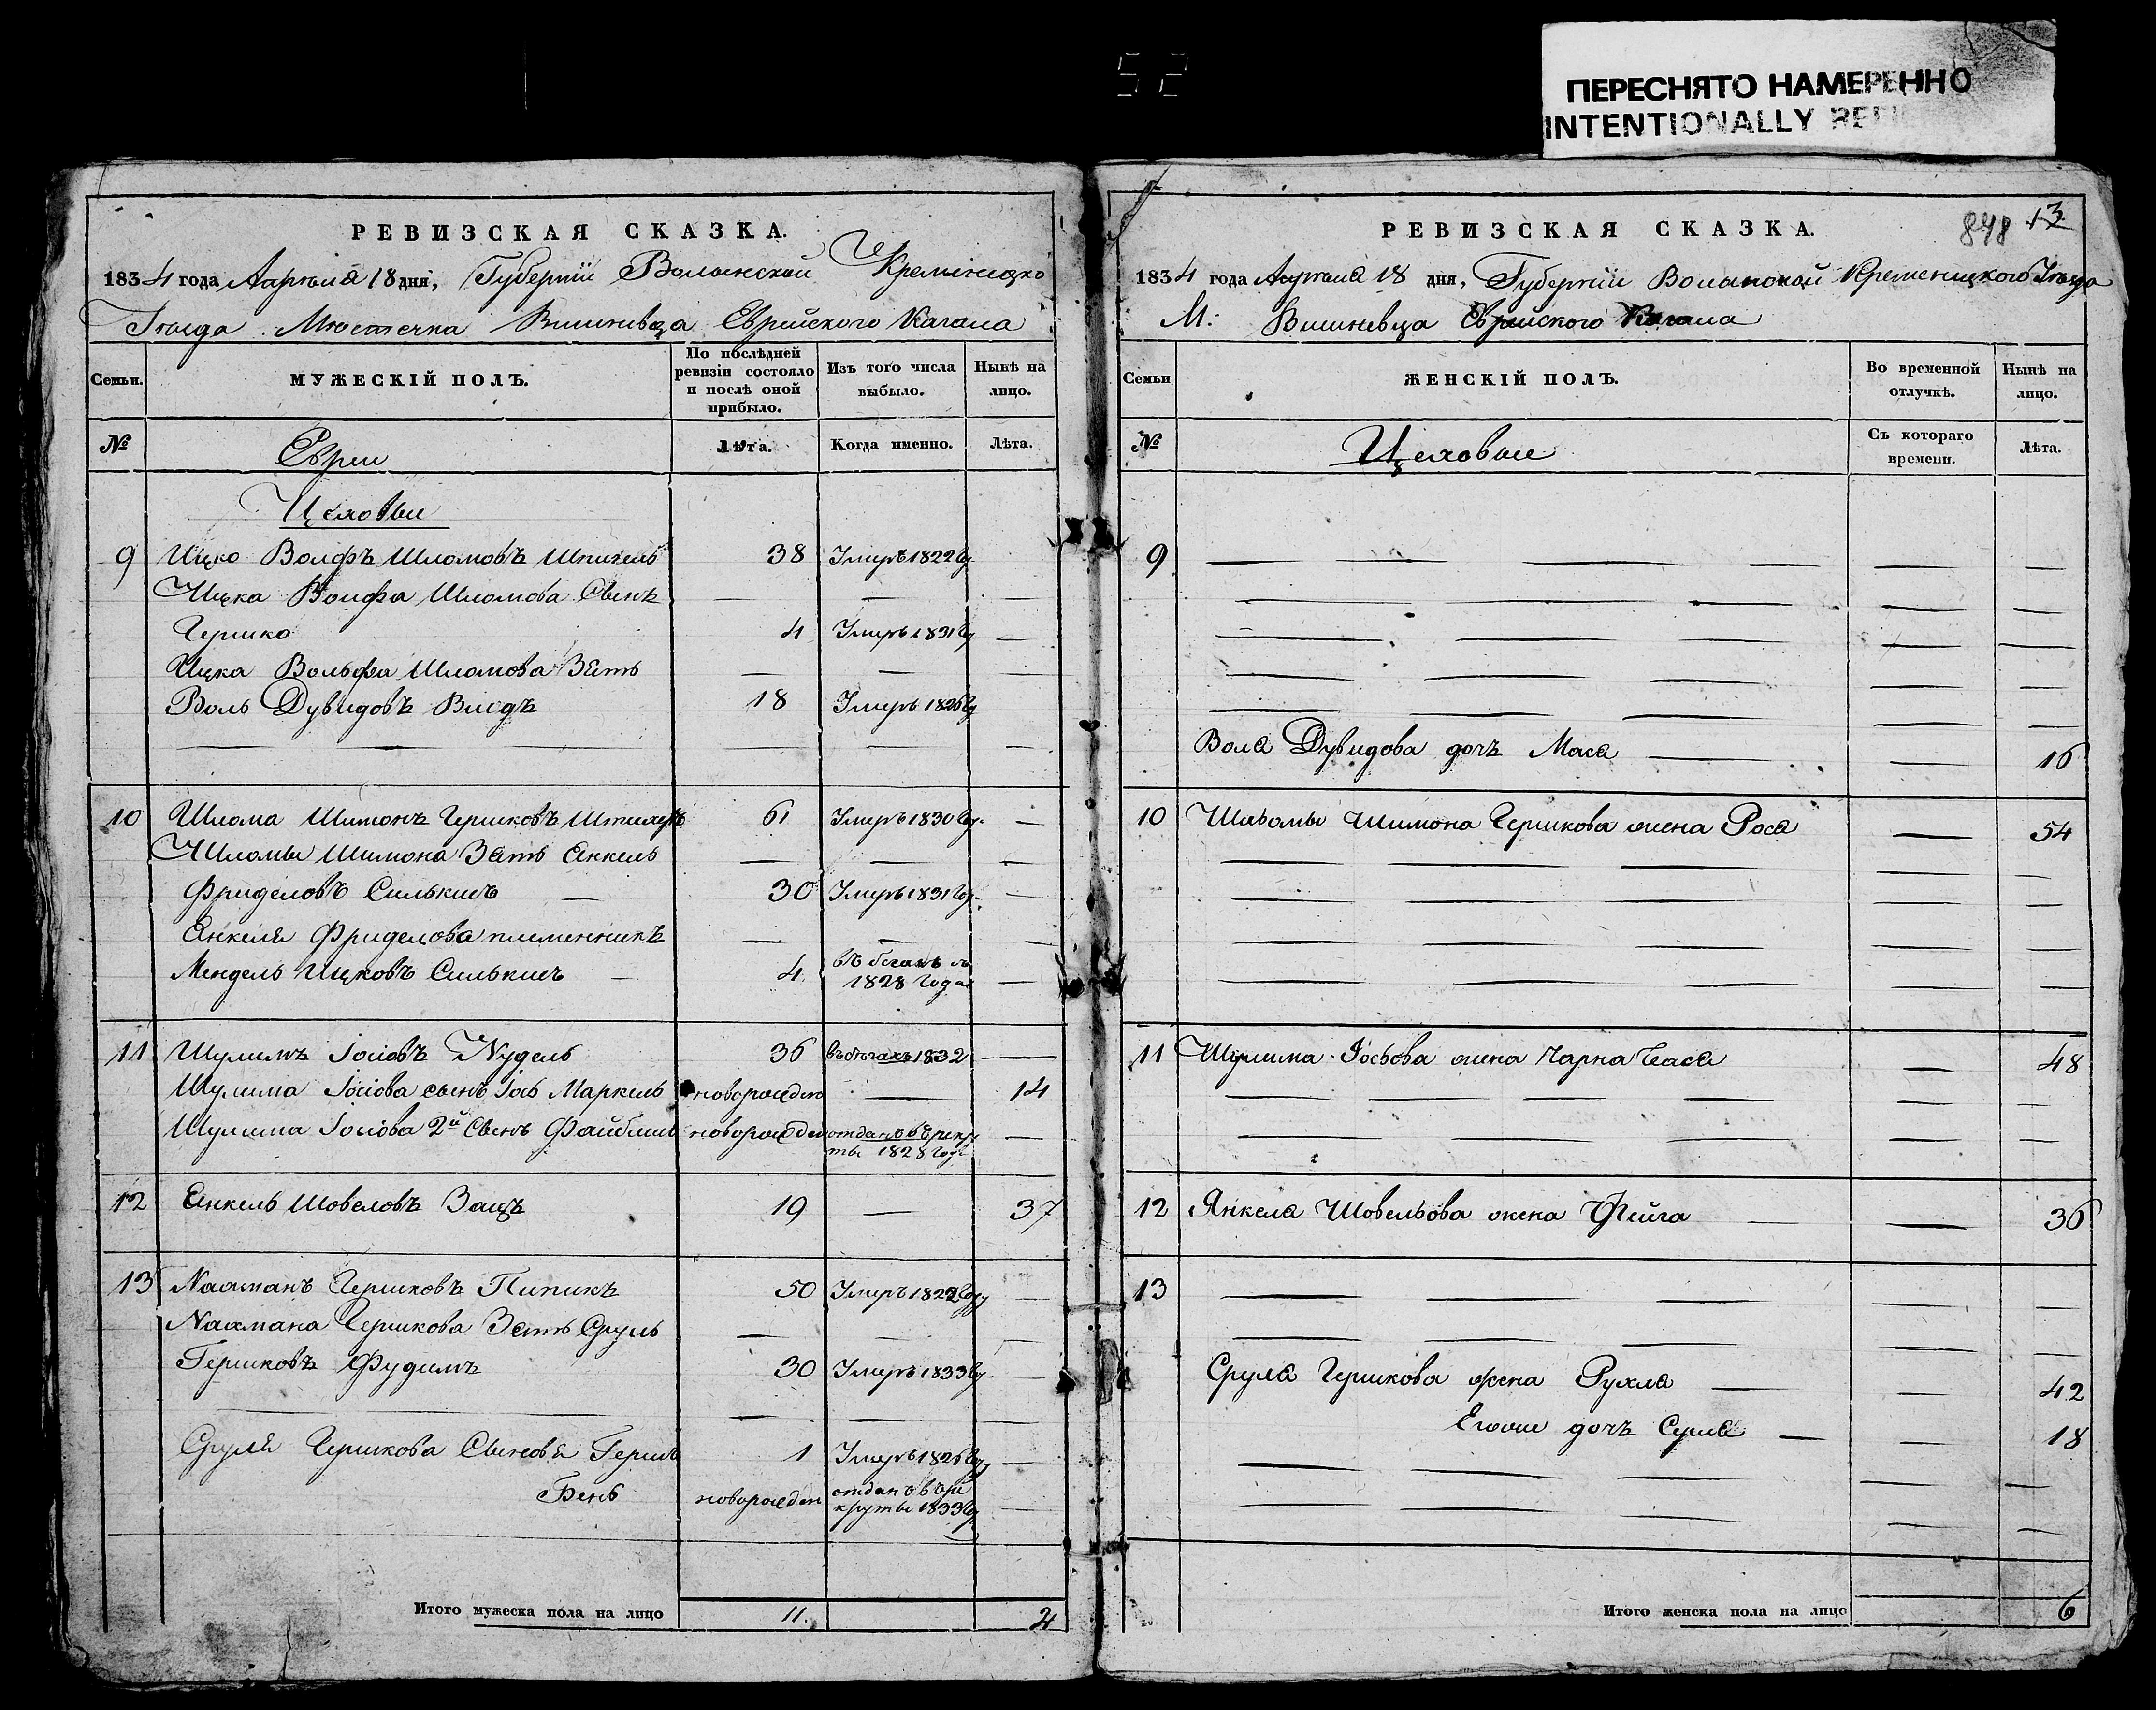 52
ПЕРЕСНЯТО НАМЕРЕННО
INTENTIONALLY
РЕВИЗСКАЯ СКАЗКА.
1834 года Апреля 18 дня, Губернии Волынской Кременецко
Уезда Местечка Вишневца Еврейского Кагала
Семьи.
МУЖЕСКІЙ ПОЛЪ.
По послѣдней ревизіи состояло и послѣ оной прибыло.
Изъ того числа выбыло.
Нынѣ на лицо.
№
Евреи
Лѣта.
Когда именно.
Лѣта.
Цеховые
9 Ицко Волфъ Шломовъ Шпигель 38 Умеръ 1822 Го
Ицка Волфа Шломова Сынъ — — —
Гершко 4 Умеръ 1831 Го —
Ицка Вольфа Шломова Зять — — —
Воль Дувидовъ 18 Умеръ 1826 Го
— — — — — —
10 Шлома Шимонъ Гершковъ 61 Умеръ 1830 Го. —
Шломы Шимона Зять Янкель — — —
Фриделовъ Силькисъ — 30 Умеръ 1831 Го. —
Янкеля Фриделова племенникъ — — —
Мендель Ицковъ Силькисъ — 4 въ бегахъ съ 1828 Года —
11 Шулимъ Іосіовъ Нудель 36 въ бѣгахъ 1832 —
Шулима Іосіова сынъ Іось Маркель новорожден — 14
Шулима Іосіова 2й Сынъ Файбишъ новорожден отданъ в рекруты 1828 Го —
12 Янкель Шовеловъ Заяцъ 19 — 37
13 Нахманъ Гершковъ Пипикъ 50 Умеръ 1822 Году —
Нахмана Гершкова Зять Сруль — — —
Гершковъ Фудимъ 30 Умеръ 1833 Го. —
— — — —
Сруля Гершкова Сыновья Гершъ 1 Умеръ 1826 Году —
Бень новорожден отдан въ рекруты 1833 Го —
Итого мужеска пола на лицо 11. 2
РЕВИЗСКАЯ СКАЗКА.
848 13
1834 года Апреля 18 дня, Губернии Волынской Кременецкого Уезда
М: Вишневца Еврейского Кагала
Семьи
ЖЕНСКІЙ ПОЛЪ.
Во временной отлучкѣ.
Нынѣ на лицо.
№
Цеховые
Съ котораго времени.
Лѣта.
9 — — — — —
— — — — —
— — — — —
— — — — —
— — — — —
Воля Дувидова дочь Мася — — 16
10 Шльомы Шимона Гершкова жена Рося — 54
— — — — —
— — — — —
— — — — —
— — — — —
11 Шулима Іосьова жена Чарна Чася — 48
— — — — — —
— — — — —
12 Янкеля Шовельова жена Фейга — — 36
13 — — — — —
— — — — —
Сруля Гершкова жена Рухля — — 42
Егоже дочь Сурля — — 18
— — — — —
— — — —
Итого женска пола на лицо 6